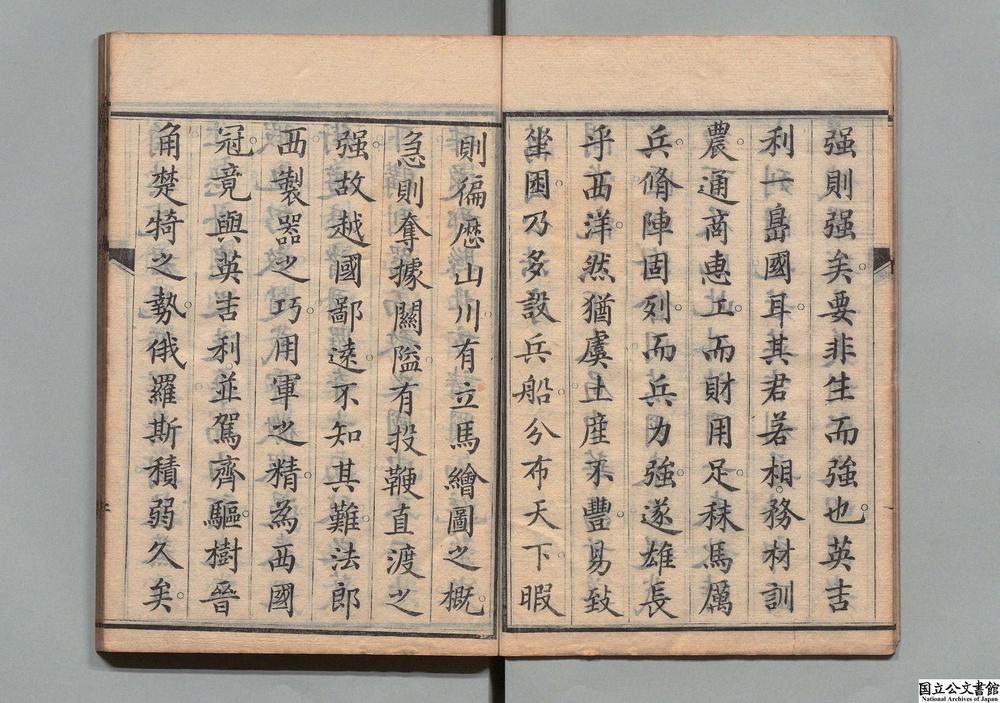 强則强矣要非生而强也英吉
利一島國耳其君若相務材訓
農通商惠工而財用足秣馬厲
兵脩陣固列而兵力强遂雄長
乎西洋然猶虞土產不豐易致
坐困乃多設兵船分布天下暇
則徧歷山川有立馬繪圖之概
急則奪據關隘有投鞭直渡之
强故越國鄙遠不知其難法郎
西製器之巧用軍之精為西國
冠竟與英吉利並駕齊驅樹晉
角楚犄之勢俄羅斯積弱久矣
国立公文書館
National Archives of Japan